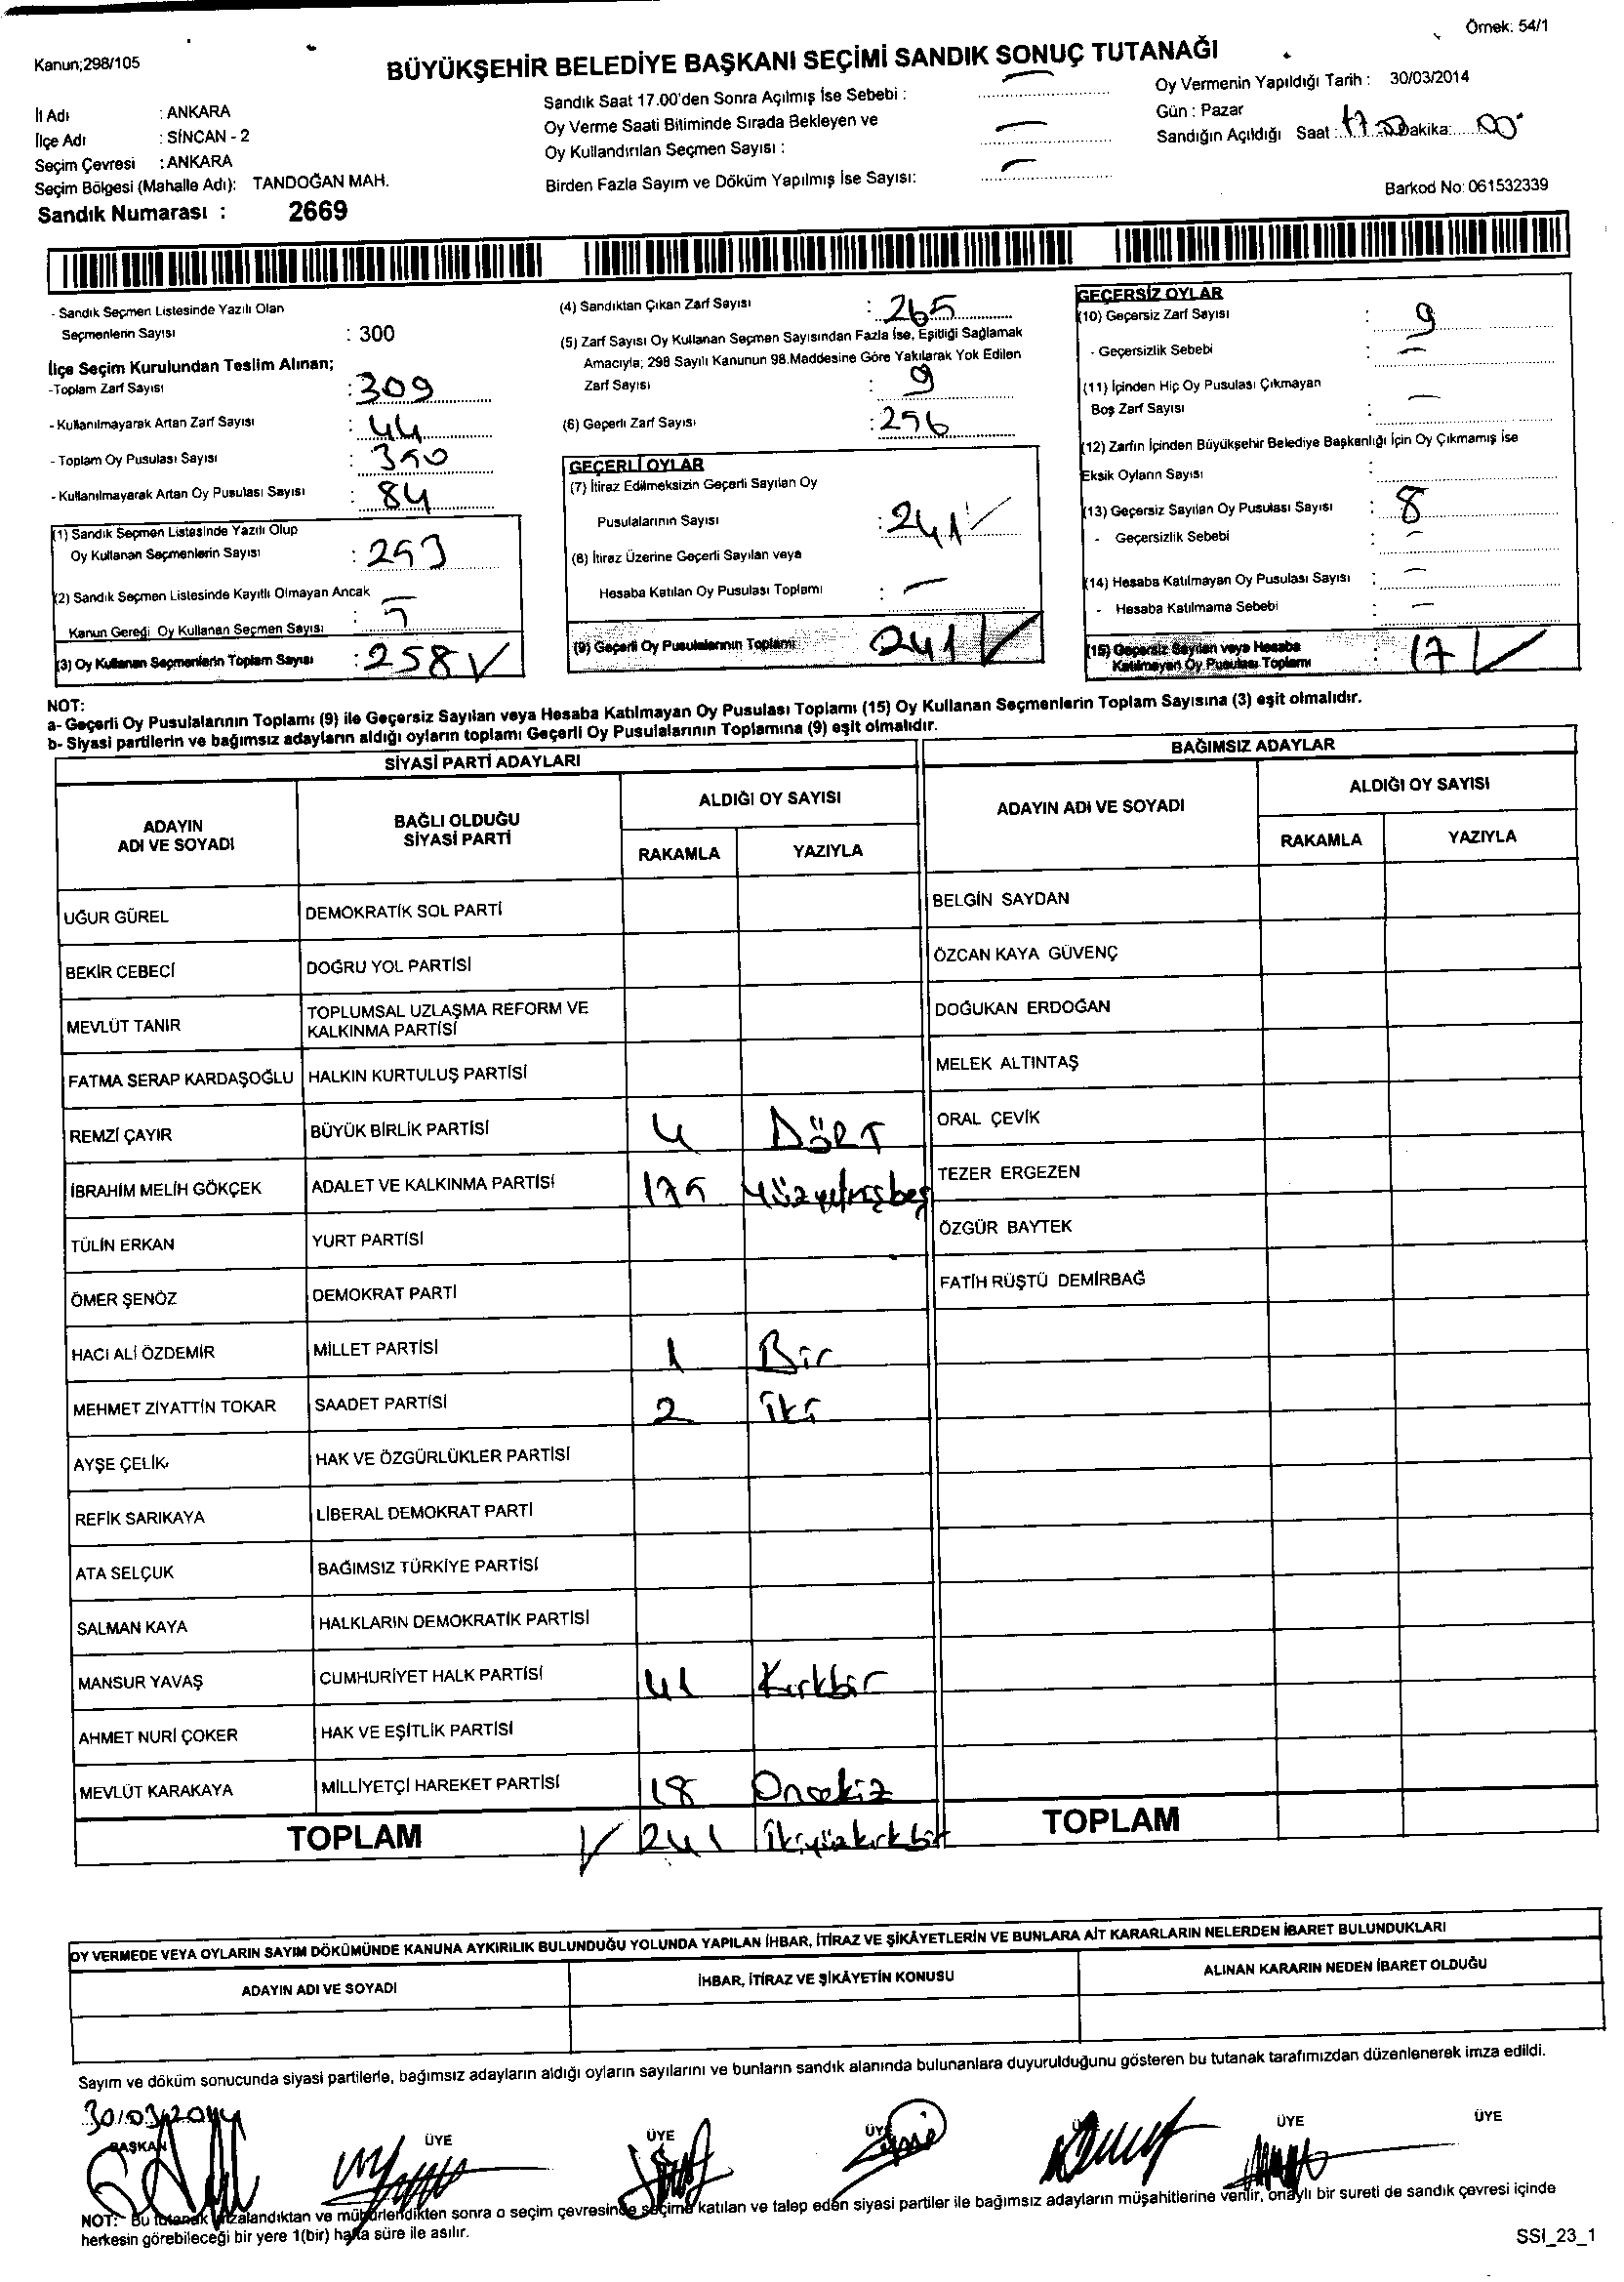 Örnek: 54/1
Kanun;298/105
BÜYÜKŞEHİR BELEDİYE BAŞKANI SEÇİMİ SANDIK SONUÇ TUTANAĞI
İl Adı : ANKARA
İlçe Adı : SİNCAN - 2
Seçim Çevresi : ANKARA
Seçim Bölgesi (Mahalle Adı): TANDOĞAN MAH.
Sandık Numarası : 2669
Sandık Saat 17.00'den Sonra Açılmış İse Sebebi : —
Oy Verme Saati Bitiminde Sırada Bekleyen ve
Oy Kullandırılan Seçmen Sayısı : —
Birden Fazla Sayım ve Döküm Yapılmış İse Sayısı: —
Oy Vermenin Yapıldığı Tarih : 30/03/2014
Gün : Pazar
Sandığın Açıldığı Saat : 17.00 Dakika: 00
Barkod No: 061532339
- Sandık Seçmen Listesinde Yazılı Olan
Seçmenlerin Sayısı : 300
İlçe Seçim Kurulundan Teslim Alınan;
-Toplam Zarf Sayısı : 309
- Kullanılmayarak Artan Zarf Sayısı : 44
- Toplam Oy Pusulası Sayısı : 350
- Kullanılmayarak Artan Oy Pusulası Sayısı : 84
(1) Sandık Seçmen Listesinde Yazılı Olup
Oy Kullanan Seçmenlerin Sayısı : 253
(2) Sandık Seçmen Listesinde Kayıtlı Olmayan Ancak
Kanun Gereği Oy Kullanan Seçmen Sayısı : 5
(3) Oy Kullanan Seçmenlerin Toplam Sayısı : 258
(4) Sandıktan Çıkan Zarf Sayısı : 265
(5) Zarf Sayısı Oy Kullanan Seçmen Sayısından Fazla İse, Eşitliği Sağlamak
Amacıyla; 298 Sayılı Kanunun 98.Maddesine Göre Yakılarak Yok Edilen
Zarf Sayısı : 9
(6) Geçerli Zarf Sayısı : 256
GEÇERLİ OYLAR
(7) İtiraz Edilmeksizin Geçerli Sayılan Oy
Pusulalarının Sayısı : 241
(8) İtiraz Üzerine Geçerli Sayılan veya
Hesaba Katılan Oy Pusulası Toplamı : —
(9) Geçerli Oy Pusulalarının Toplamı 241
GEÇERSİZ OYLAR
(10) Geçersiz Zarf Sayısı : 9
- Geçersizlik Sebebi : —
(11) İçinden Hiç Oy Pusulası Çıkmayan
Boş Zarf Sayısı : —
(12) Zarfın İçinden Büyükşehir Belediye Başkanlığı İçin Oy Çıkmamış İse
Eksik Oyların Sayısı :
(13) Geçersiz Sayılan Oy Pusulası Sayısı : 8
- Geçersizlik Sebebi : —
(14) Hesaba Katılmayan Oy Pusulası Sayısı : —
- Hesaba Katılmama Sebebi : —
(15) Geçersiz Sayılan veya Hesaba
Katılmayan Oy Pusulası Toplamı : 17
NOT:
a- Geçerli Oy Pusulalarının Toplamı (9) ile Geçersiz Sayılan veya Hesaba Katılmayan Oy Pusulası Toplamı (15) Oy Kullanan Seçmenlerin Toplam Sayısına (3) eşit olmalıdır.
b- Siyasi partilerin ve bağımsız adayların aldığı oyların toplamı Geçerli Oy Pusulalarının Toplamına (9) eşit olmalıdır.
SİYASİ PARTİ ADAYLARI
ADAYIN ADI VE SOYADI
BAĞLI OLDUĞU SİYASİ PARTİ
ALDIĞI OY SAYISI
RAKAMLA YAZIYLA
UĞUR GÜREL DEMOKRATİK SOL PARTİ
BEKİR CEBECİ DOĞRU YOL PARTİSİ
MEVLÜT TANIR TOPLUMSAL UZLAŞMA REFORM VE
KALKINMA PARTİSİ
FATMA SERAP KARDAŞOĞLU HALKIN KURTULUŞ PARTİSİ
REMZİ ÇAYIR BÜYÜK BİRLİK PARTİSİ 4 DÖRT
İBRAHİM MELİH GÖKÇEK ADALET VE KALKINMA PARTİSİ 175 Yüzyetmişbeş
TÜLİN ERKAN YURT PARTİSİ
ÖMER ŞENÖZ DEMOKRAT PARTİ
HACI ALİ ÖZDEMİR MİLLET PARTİSİ 1 Bir
MEHMET ZİYATTİN TOKAR SAADET PARTİSİ 2 İki
AYŞE ÇELİK HAK VE ÖZGÜRLÜKLER PARTİSİ
REFİK SARIKAYA LİBERAL DEMOKRAT PARTİ
ATA SELÇUK BAĞIMSIZ TÜRKİYE PARTİSİ
SALMAN KAYA HALKLARIN DEMOKRATİK PARTİSİ
MANSUR YAVAŞ CUMHURİYET HALK PARTİSİ 41 Kırkbir
AHMET NURİ ÇOKER HAK VE EŞİTLİK PARTİSİ
MEVLÜT KARAKAYA MİLLİYETÇİ HAREKET PARTİSİ 18 Onsekiz
TOPLAM 241 İkiyüzkırkbir
BAĞIMSIZ ADAYLAR
ADAYIN ADI VE SOYADI
ALDIĞI OY SAYISI
RAKAMLA YAZIYLA
BELGİN SAYDAN
ÖZCAN KAYA GÜVENÇ
DOĞUKAN ERDOĞAN
MELEK ALTINTAŞ
ORAL ÇEVİK
TEZER ERGEZEN
ÖZGÜR BAYTEK
FATİH RÜŞTÜ DEMİRBAĞ
TOPLAM
OY VERMEDE VEYA OYLARIN SAYIM DÖKÜMÜNDE KANUNA AYKIRILIK BULUNDUĞU YOLUNDA YAPILAN İHBAR, İTİRAZ VE ŞİKÂYETLERİN VE BUNLARA AİT KARARLARIN NELERDEN İBARET BULUNDUKLARI
ADAYIN ADI VE SOYADI İHBAR, İTİRAZ VE ŞİKÂYETİN KONUSU ALINAN KARARIN NEDEN İBARET OLDUĞU
Sayım ve döküm sonucunda siyasi partilerle, bağımsız adayların aldığı oyların sayılarını ve bunların sandık alanında bulunanlara duyurulduğunu gösteren bu tutanak tarafımızdan düzenlenerek imza edildi.
30/03/2014
BAŞKAN ÜYE ÜYE ÜYE ÜYE ÜYE
NOT:- Bu tutanak imzalandıktan ve mühürlendikten sonra o seçim çevresinde seçime katılan ve talep eden siyasi partiler ile bağımsız adayların müşahitlerine verilir, onaylı bir sureti de sandık çevresi içinde
herkesin görebileceği bir yere 1(bir) hafta süre ile asılır.
SSI_23_1